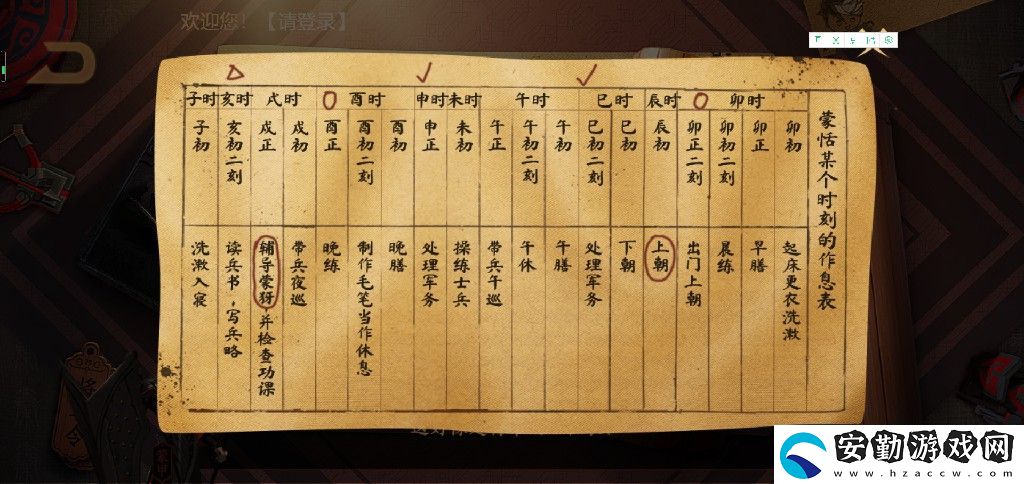 欢迎您！【请登录】
蒙恬某个时刻的作息表
卯时
辰时
巳时
午时
未时
申时
酉时
戌时
亥时
子时
卯初
卯正
卯初二刻
卯正二刻
辰初
巳初
巳初二刻
午初
午初二刻
午正
未初
申正
酉初
酉初二刻
酉正
戌初
戌正
亥初二刻
子初
起床更衣洗漱
早膳
晨练
出门上朝
上朝
下朝
处理军务
午膳
午休
带兵午巡
操练士兵
处理军务
晚膳
制作毛笔当作休息
晚练
带兵夜巡
辅导蒙犽，并检查功课
读兵书，写兵略
洗漱入寝
安勤游戏网
www.hzaccw.com